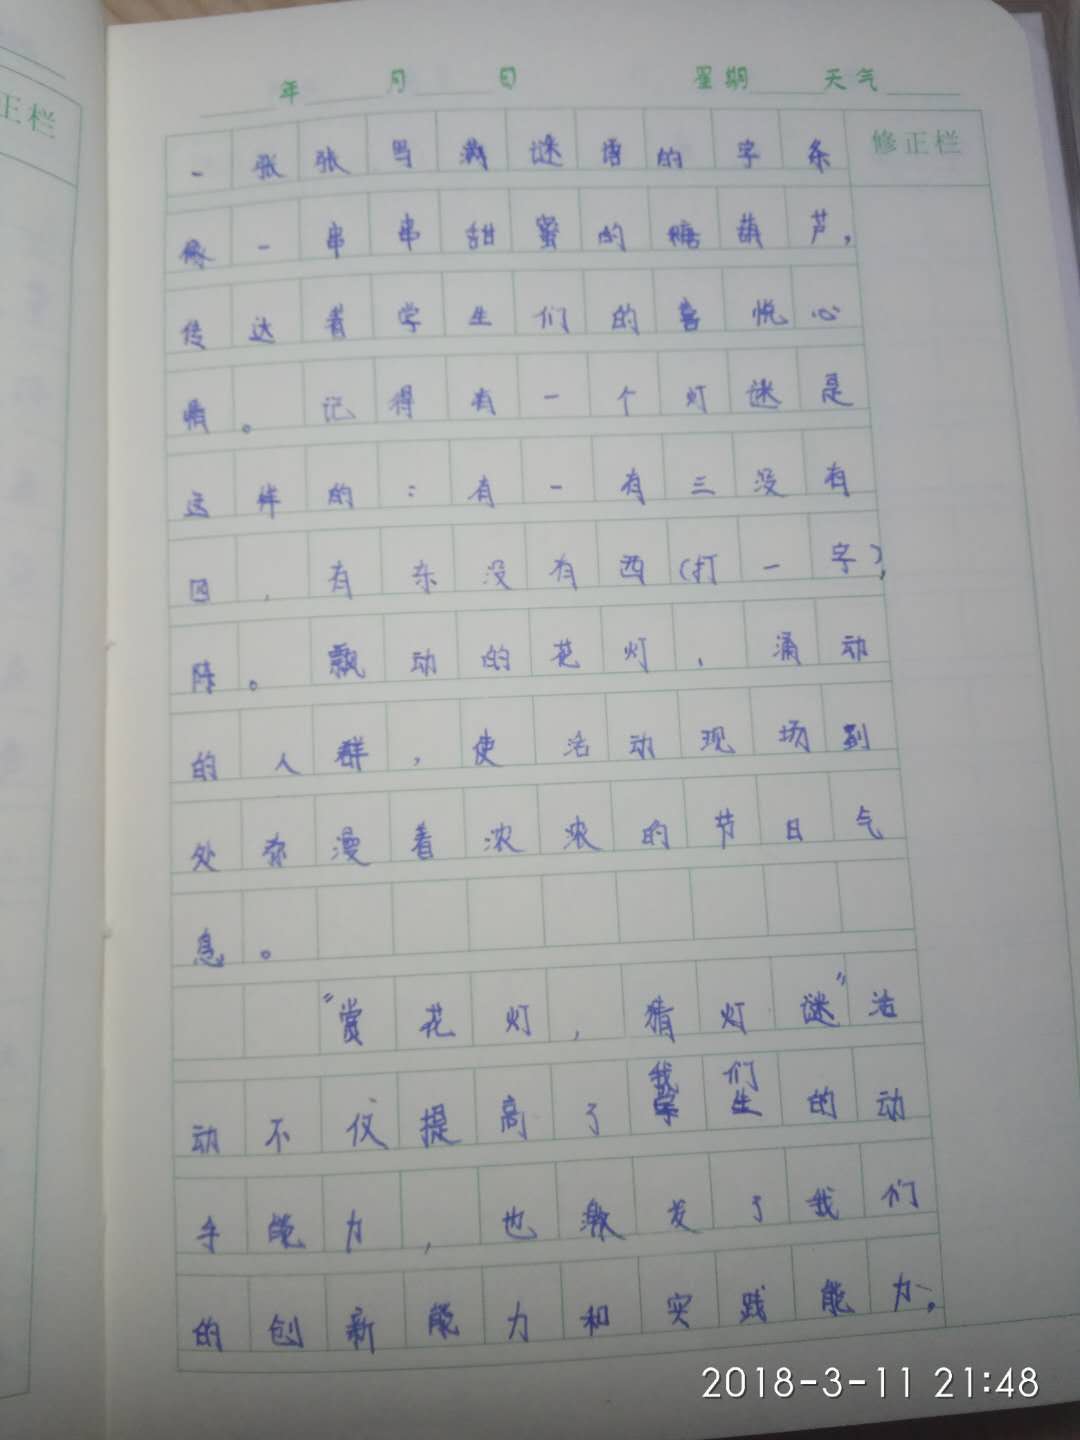 正栏
年 月 日 星期 天气
修正栏
一张张写满谜语的字条
像一串串甜蜜的糖葫芦，
传达着学生们的喜悦心
情。记得有一个灯谜是
这样的：有一有三没有
四，有东没有西(打一字)，
陈。飘动的花灯，涌动
的人群，使活动现场到
处弥漫着浓浓的节日气
息。
“赏花灯，猜灯谜”活
动不仅提高了我们的动
手能力，也激发了我们
的创新能力和实践能力。
2018-3-11 21:48